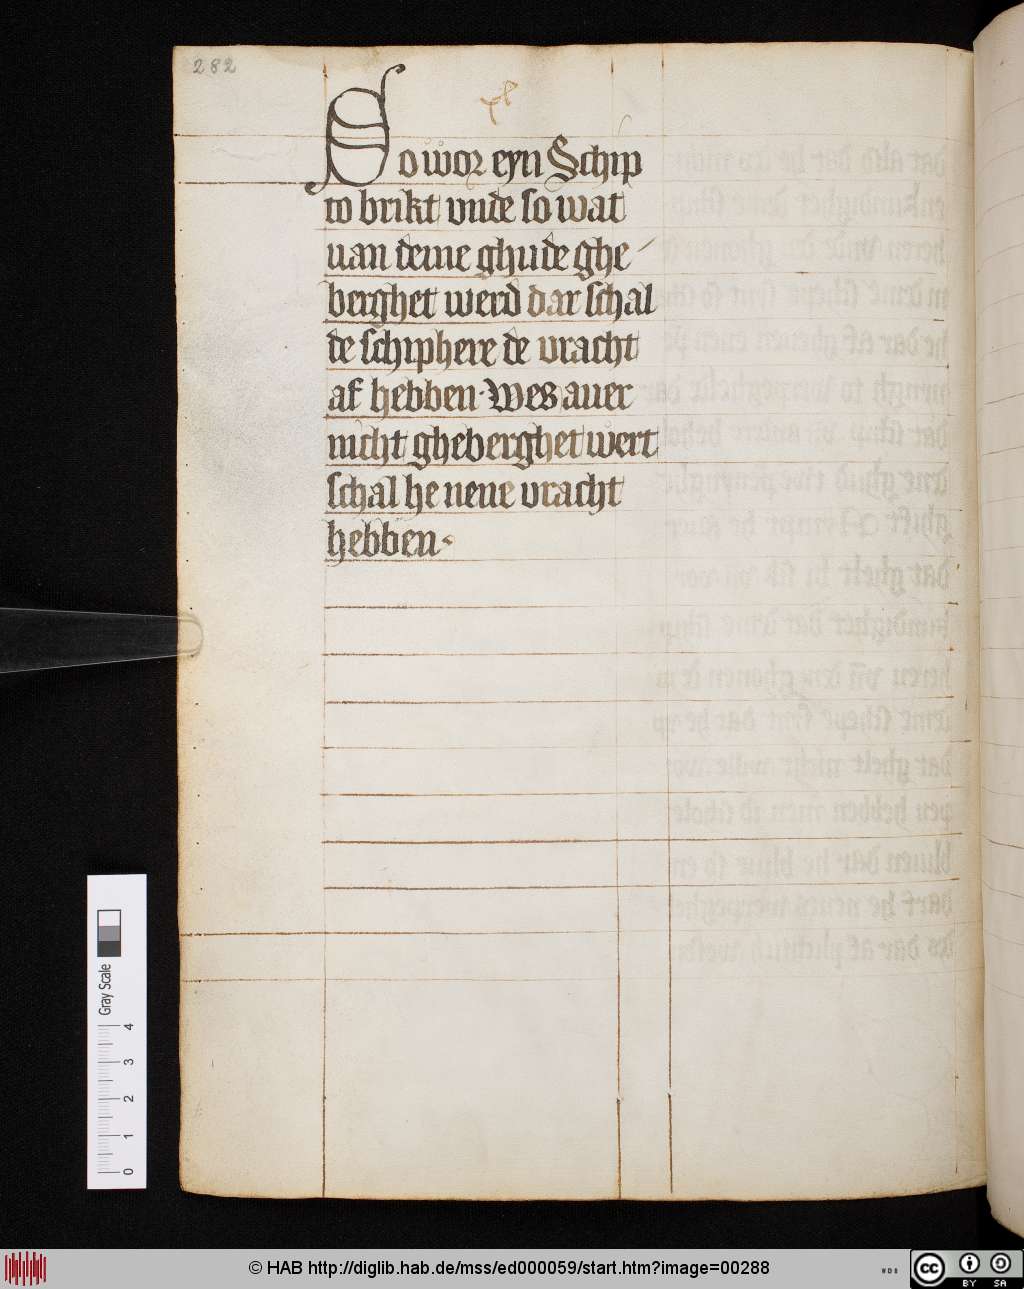 282
So wor eyn Schip
to brikt vnde so wat
uan deme ghude ghe
berghet werd dar schal
de schiphere de vracht
af hebben· Wes auer
nicht gheberghet wert
schal he nene vracht
hebben·
Gray Scale
0 1 2 3 4
© HAB http://diglib.hab.de/mss/ed000059/start.htm?image=00288
WDB
cc BY SA